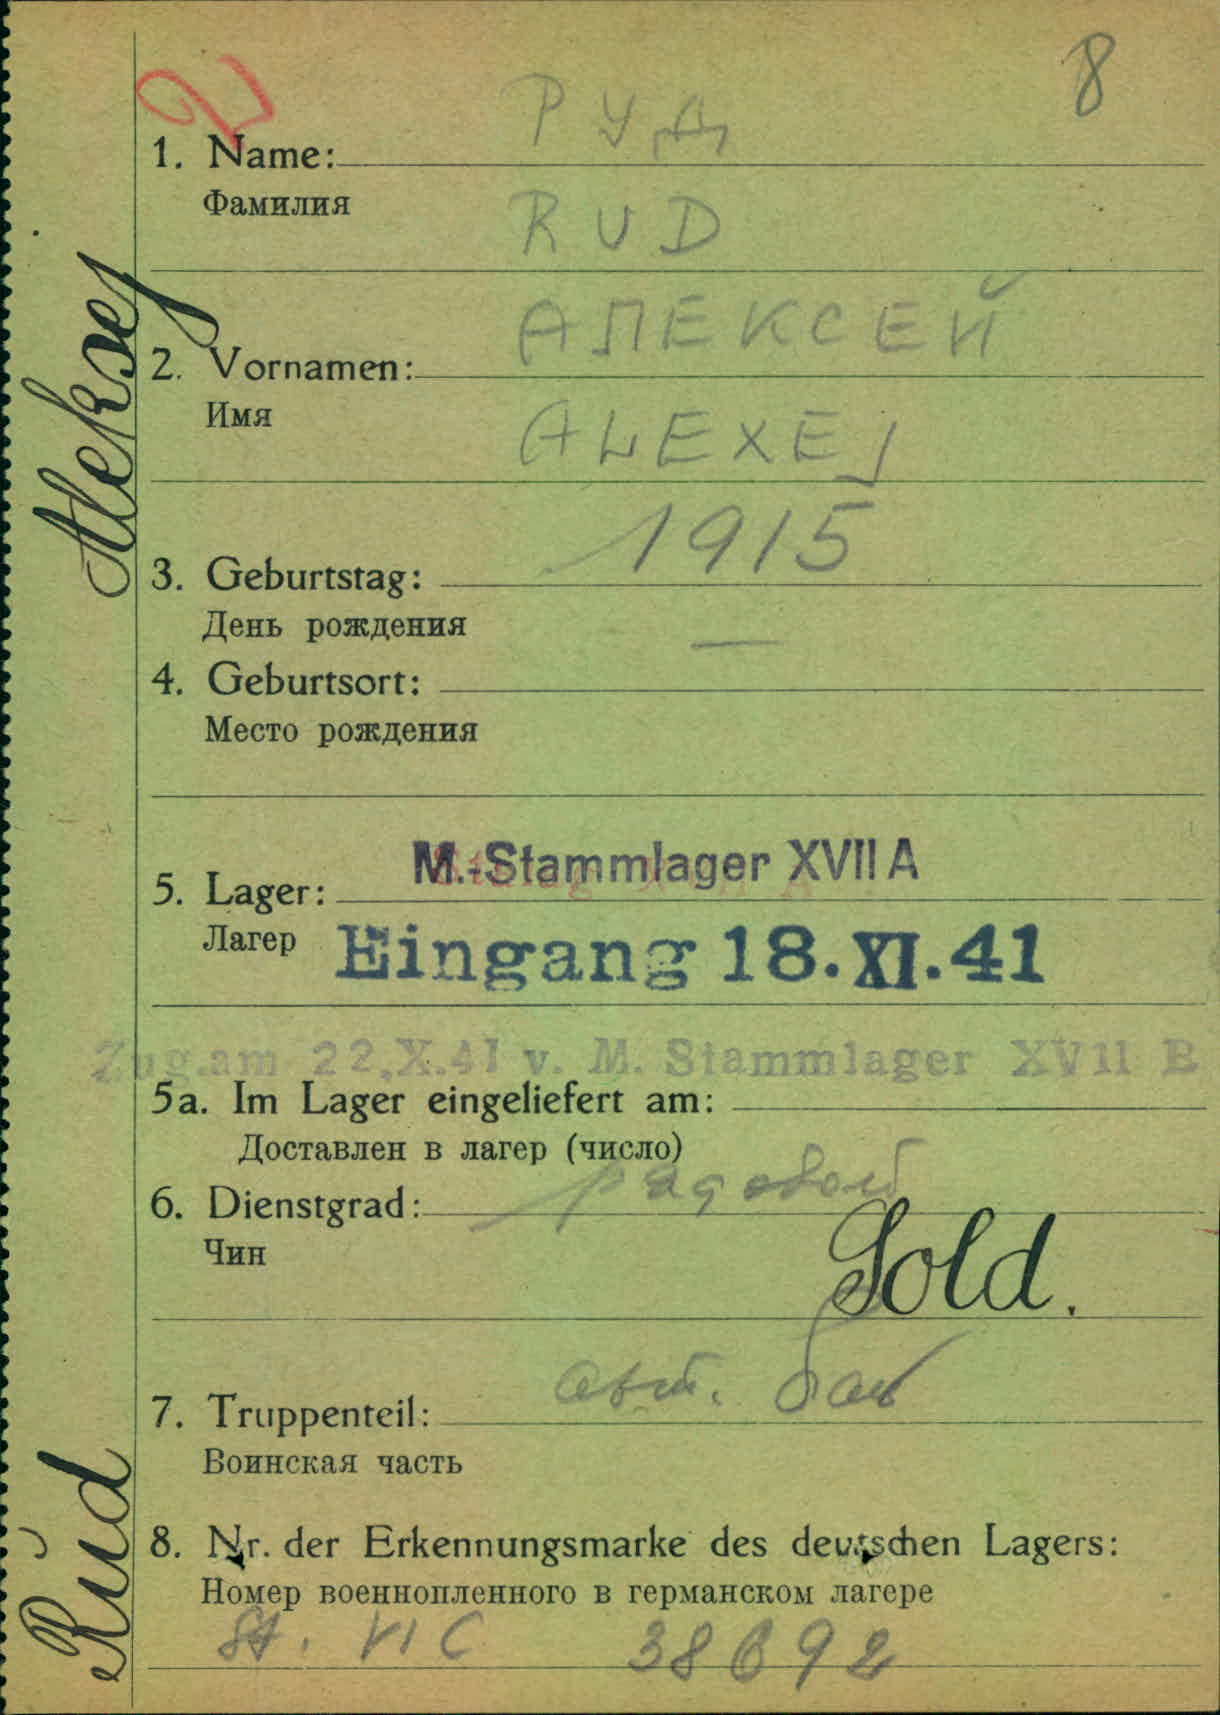 2 8
РУД
1. Name:
Фамилия
RUD
АЛЕКСЕЙ
2. Vornamen:
Имя
ALEXEJ
1915
3. Geburtstag:
День рождения
—
4. Geburtsort:
Место рождения
M.-Stammlager XVII A
5. Lager:
Лагер
Eingang 18.XI.41
Zug.am 22.X.41 v. M. Stammlager XVII B
5a. Im Lager eingeliefert am:
Доставлен в лагер (число)
рядовой
6. Dienstgrad:
Чин
Sold.
авт. бат
7. Truppenteil:
Воинская часть
8. Nr. der Erkennungsmarke des deutschen Lagers:
Номер военнопленного в германском лагере
St. VI C 38692
Rud Aleksej